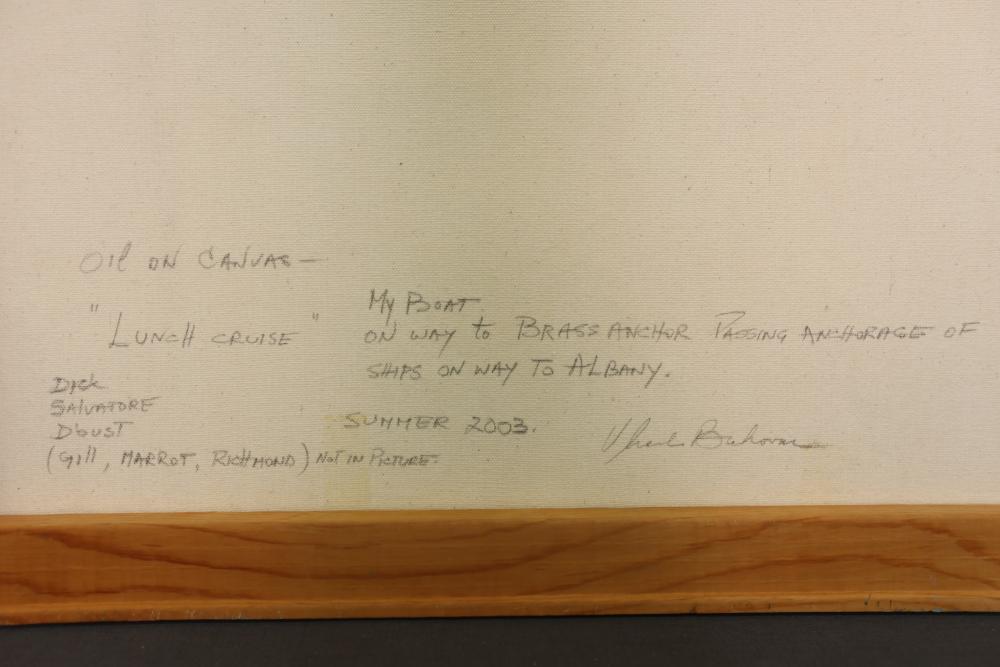 OIL ON CANVAS —
"LUNCH CRUISE"
MY BOAT
ON WAY to BRASS ANCHOR PASSING ANCHORAGE OF
SHIPS ON WAY TO ALBANY.
DICK
SALVATORE
D'OUST
(GILL, MARROT, RICHMOND) NOT IN PICTURE.
SUMMER 2003.